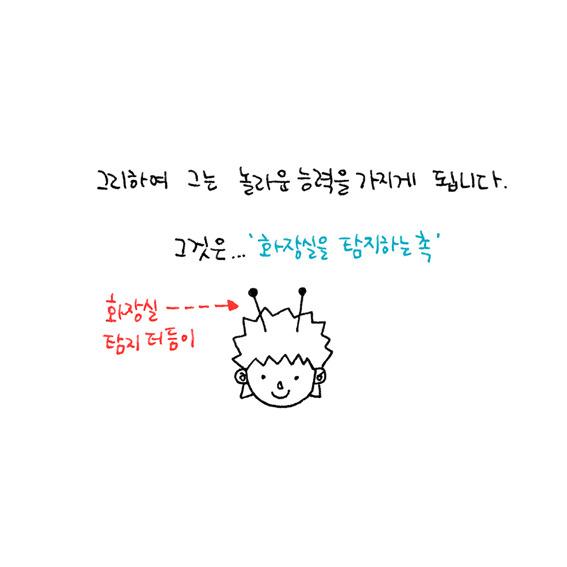 그리하여 그는 놀라운 능력을 가지게 됩니다.
그것은... '화장실을 탐지하는 촉'
화장실
탐지 더듬이